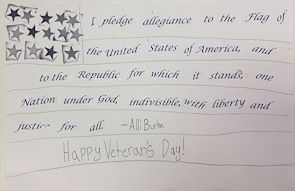 I pledge allegiance to the Flag of
the United States of America, and
to the Republic for which it stands, one
Nation under God, indivisible, with liberty and
justice for all. -Alli Burke
Happy Veteran's Day!